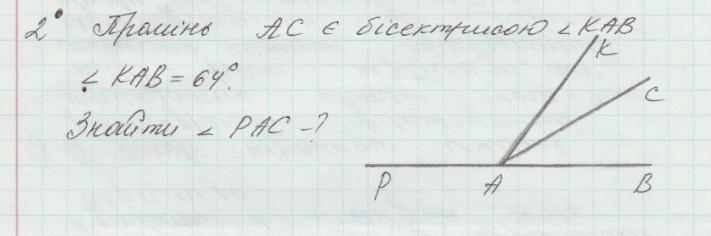 2° Промінь AC є бісектрисою ∠KAB
∠ KAB = 64°.
Знайти ∠ PAC - ?
K
C
P A B